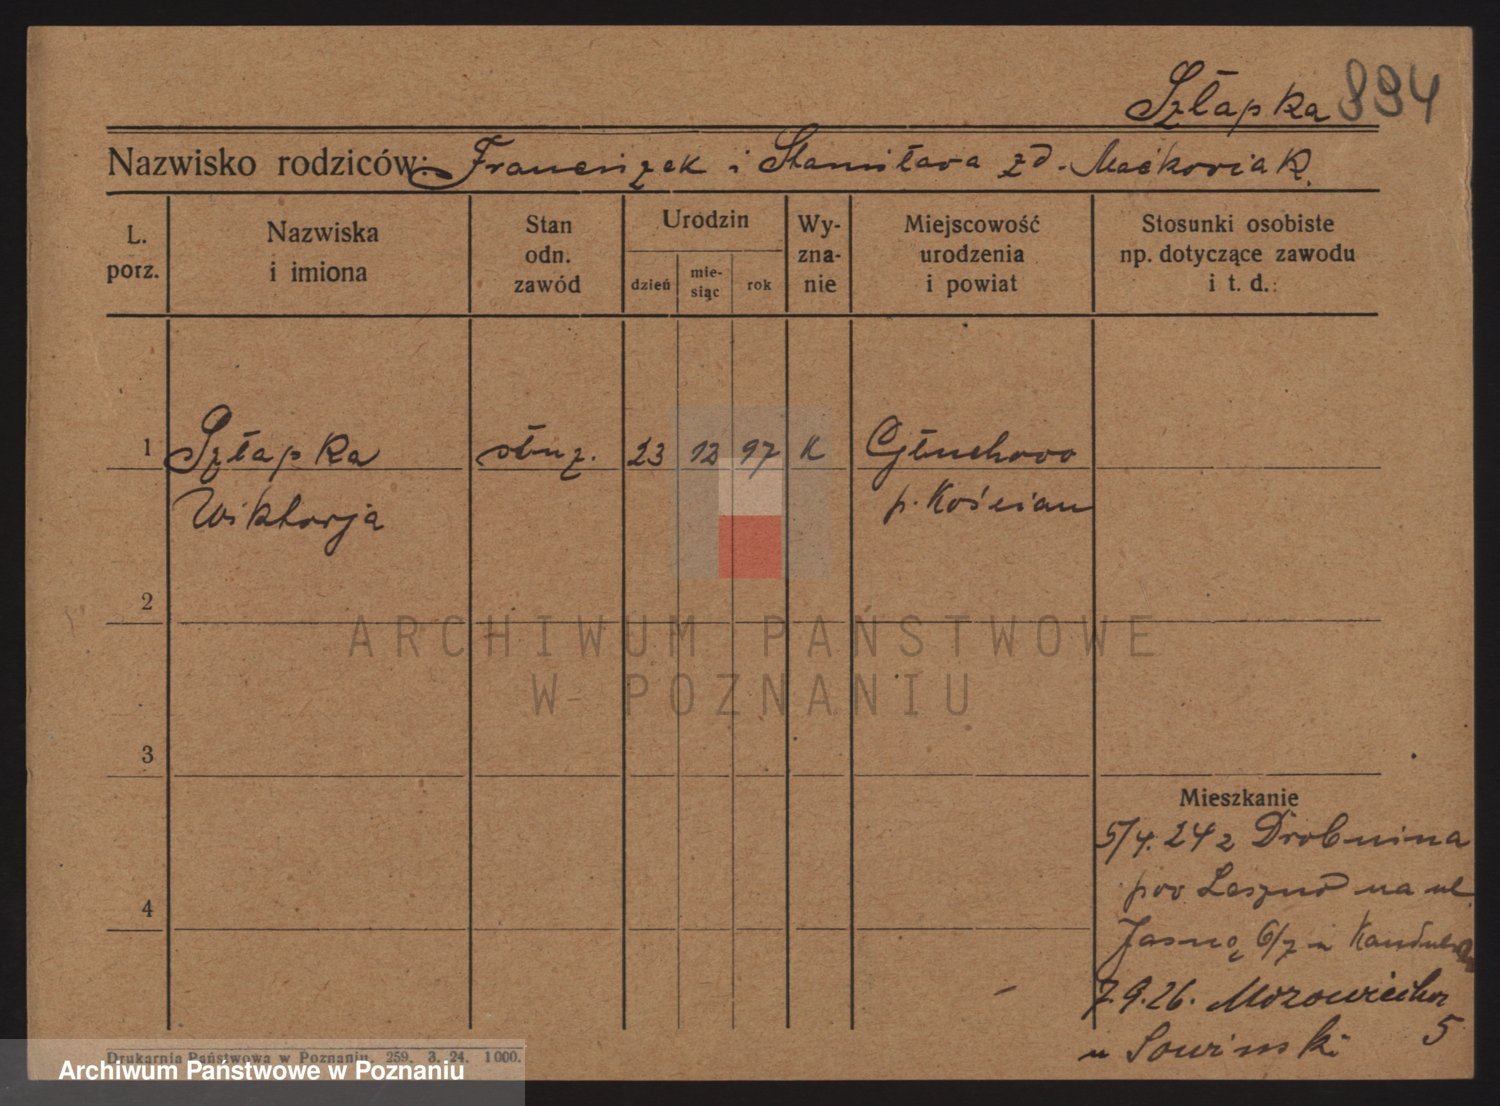 Szłapka 894
Nazwisko rodziców: Franciszek i Stanisława zd. Maćkowiak
L. porz.
Nazwiska i imiona
Stan odn. zawód
Urodzin
dzień
mie-siąc
rok
Wy-zna-nie
Miejscowość urodzenia i powiat
Stosunki osobiste np. dotyczące zawodu i t. d.:
1 Szłapka służ. 23 12 97 K Głuchowo
Wiktorja p. Kościan
2
ARCHIWUM PAŃSTWOWE
W POZNANIU
3
Mieszkanie
5/4. 24 z Drobnina
pow Leszno na ul.
4
Jasną 6/7 u
7.9.26. Mazowiecka
5
u Sowinski
Drukarnia Państwowa w Poznaniu. 259. 3. 24. 1000.
Archiwum Państwowe w Poznaniu